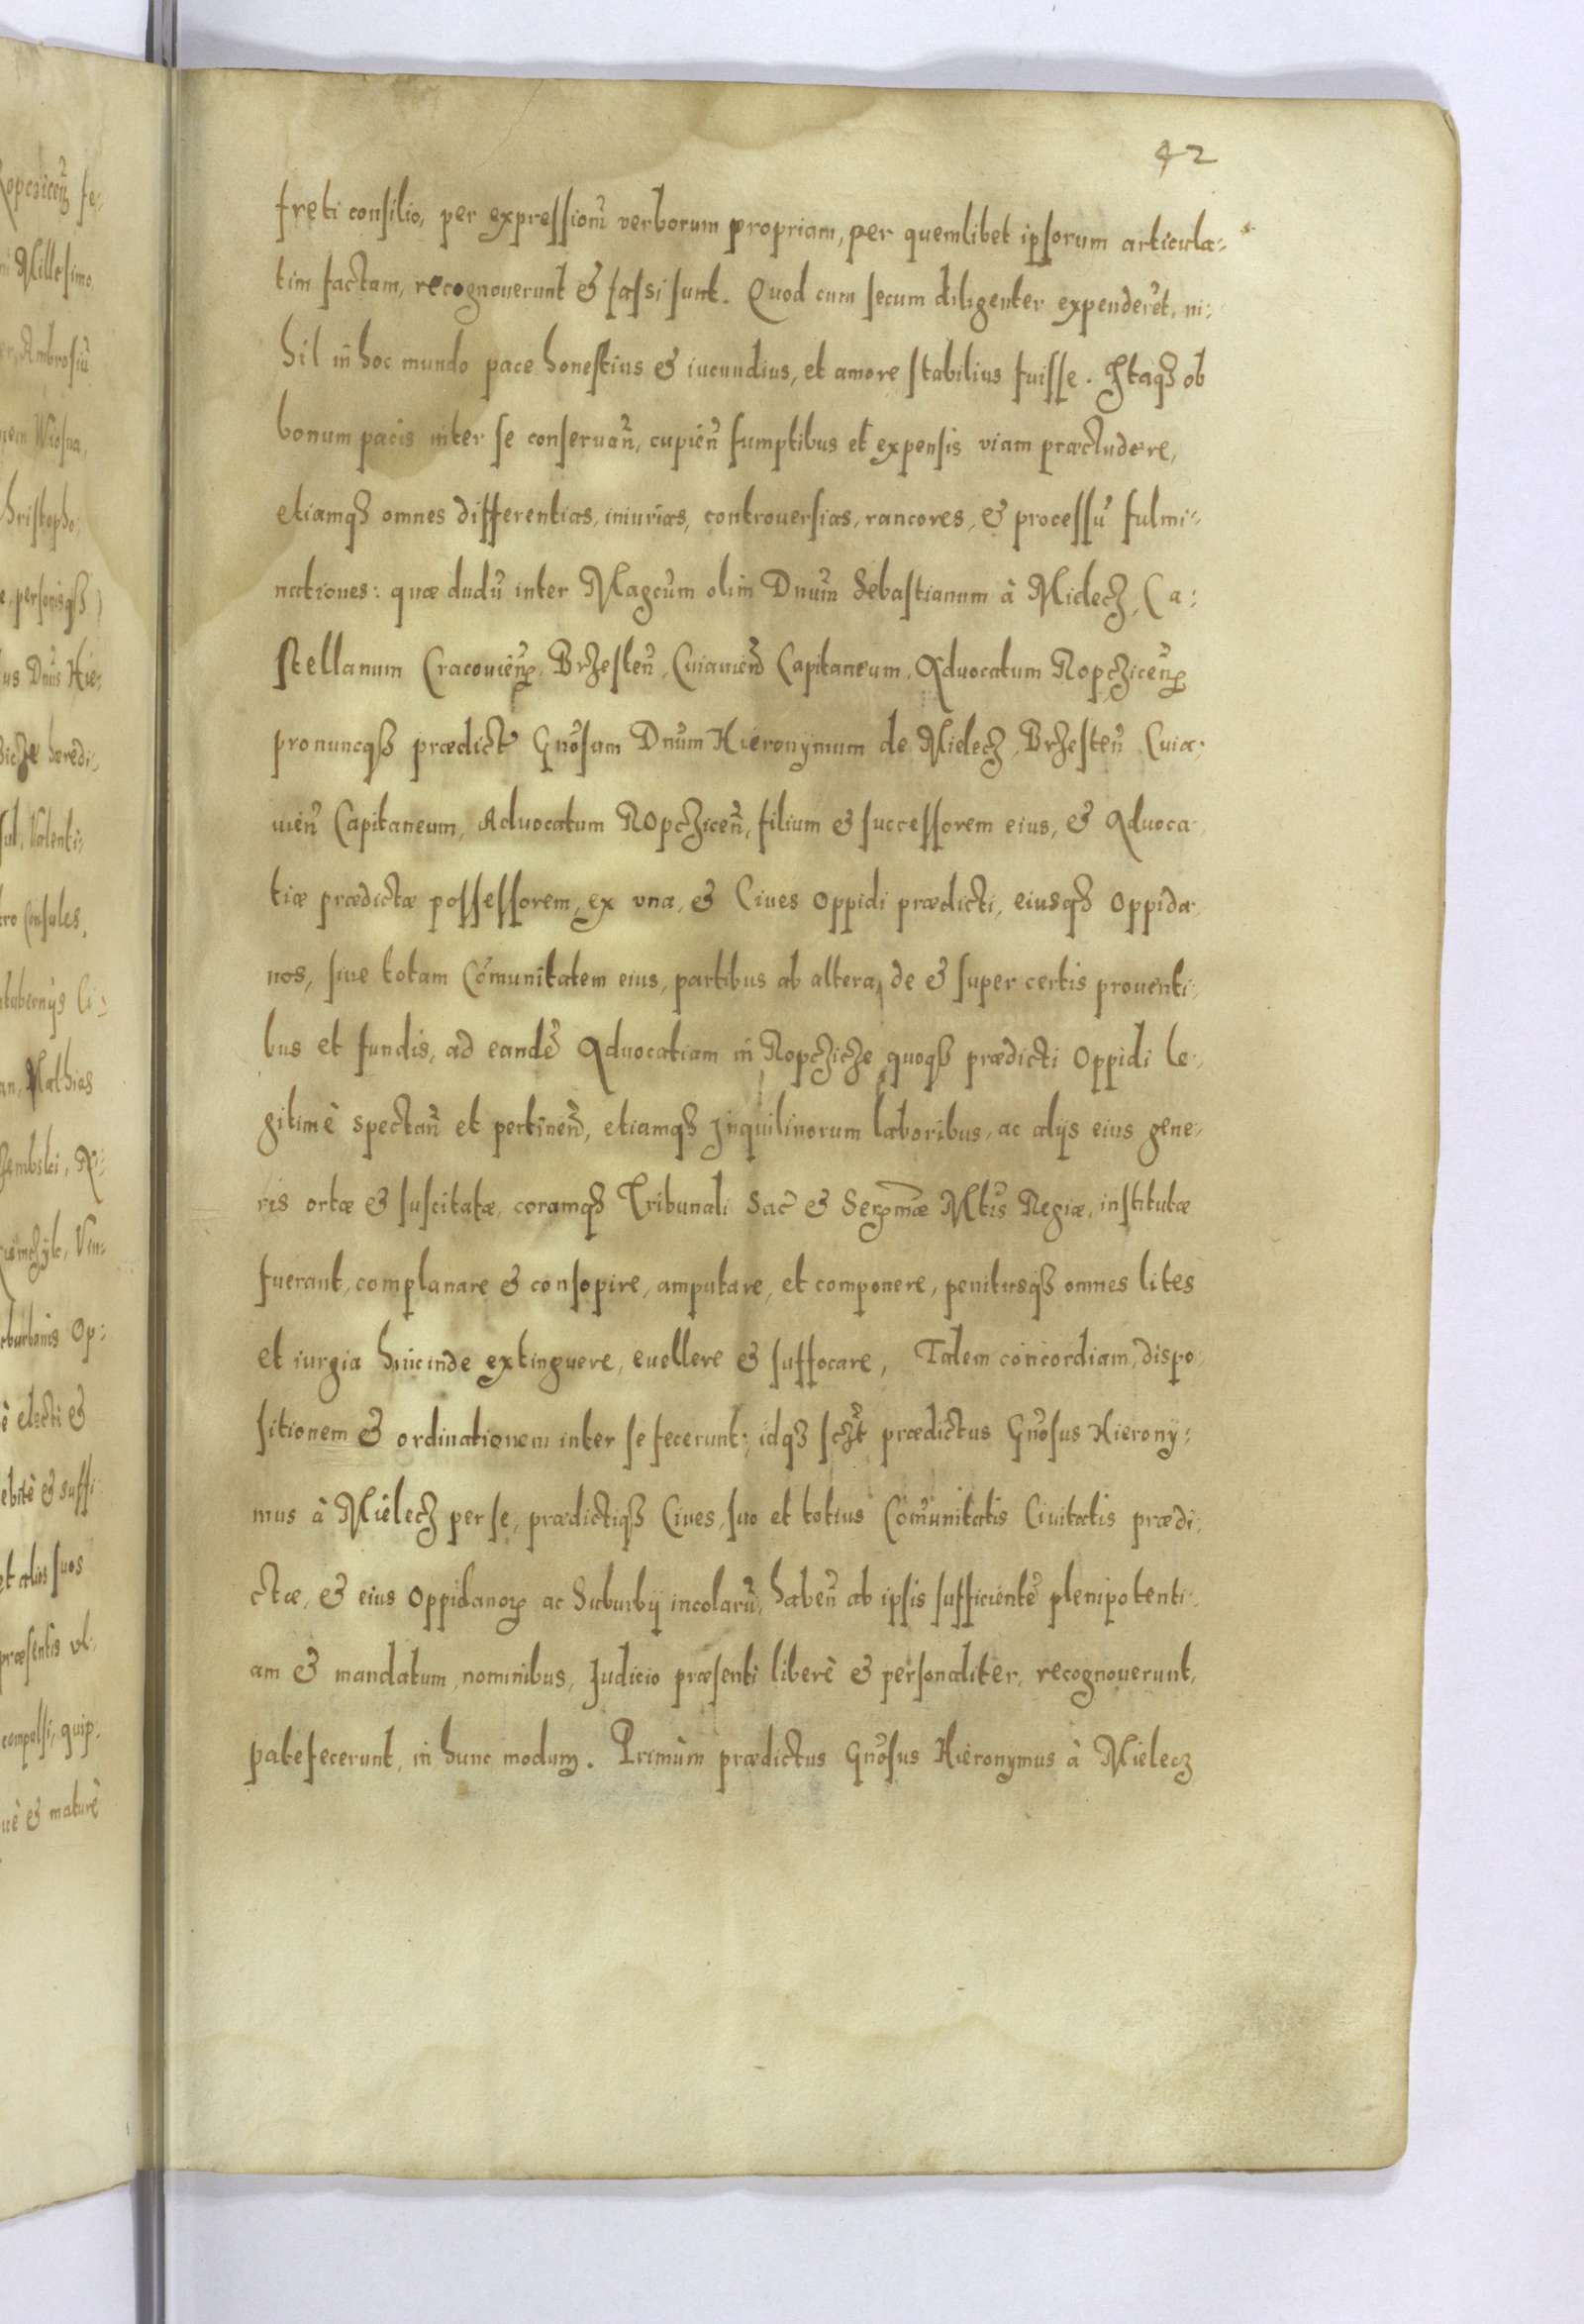 42
freti consilio, per expressionẽ verborum propriam, per quemlibet ipsorum articula:
tim factam, recognouerunt & fassi sunt. Quod cum secum diligenter expenderẽt, ni:
hil in hoc mundo pace honestius & iucundius, et amore stabilius fuisse. Itaqꝫ ob
bonum pacis inter se conseruan̄, cupien̄ sumptibus et expensis viam præcludere,
etiamqꝫ omnes differentias, iniurias, controuersias, rancores, & processũ fulmi:
nationes: quæ dudũ inter Magcũm olim Dnũm Sebastianum à Mielecz, Ca:
stellanum Cracouien̄, Brzesten̄, Cuiauien̄ Capitaneum, Aduocatum Ropczicen̄
pronuncqꝫ prædict Gnõsum Dnũm Hieronymum de Mielecz, Brzesten̄ Cuia:
uien̄ Capitaneum, Aduocatum Ropczicen̄, filium & successorem eius, & Aduoca
tiæ prædictæ possessorem, ex vna, & Ciues Oppidi prædicti, eiusqꝫ Oppida
nos, siue totam Cõmunitatem eius, partibus ab altera, de & super certis prouenti:
bus et fundis, ad eandẽ Aduocatiam in Ropczicze quoqꝫ prædicti Oppidi le:
gitimè spectan̄ et pertinen̄, etiamqꝫ Inquilinorum laboribus, ac alijs eius gene:
ris ortæ & suscitatæ, coramqꝫ Tribunali Sac̃ & Serꝑmæ Mtis Regiæ, institutæ
fuerant, complanare & consopire, amputare, et componere, penitusqꝫ omnes lites
et iurgia hincinde extinguere, euellere & suffocare, Talem concordiam, dispo
sitionem & ordinationem inter se fecerunt: idqꝫ prædictus Gnõsus Hierony:
mus à Mielecz per se, prædictiqꝫ Ciues, suo et totius Cõmunitatis Ciuitatis prædi:
ctæ, & eius Oppidanorꝫ ac Suburbij incolarũ, haben̄ ab ipsis sufficientẽ plenipotenti:
am & mandatum, nominibus, Iudicio præsenti liberè & personaliter, recognouerunt,
patefecerunt, in hunc modum. Primùm prædictus Gnõsus Hieronymus à Mielecz